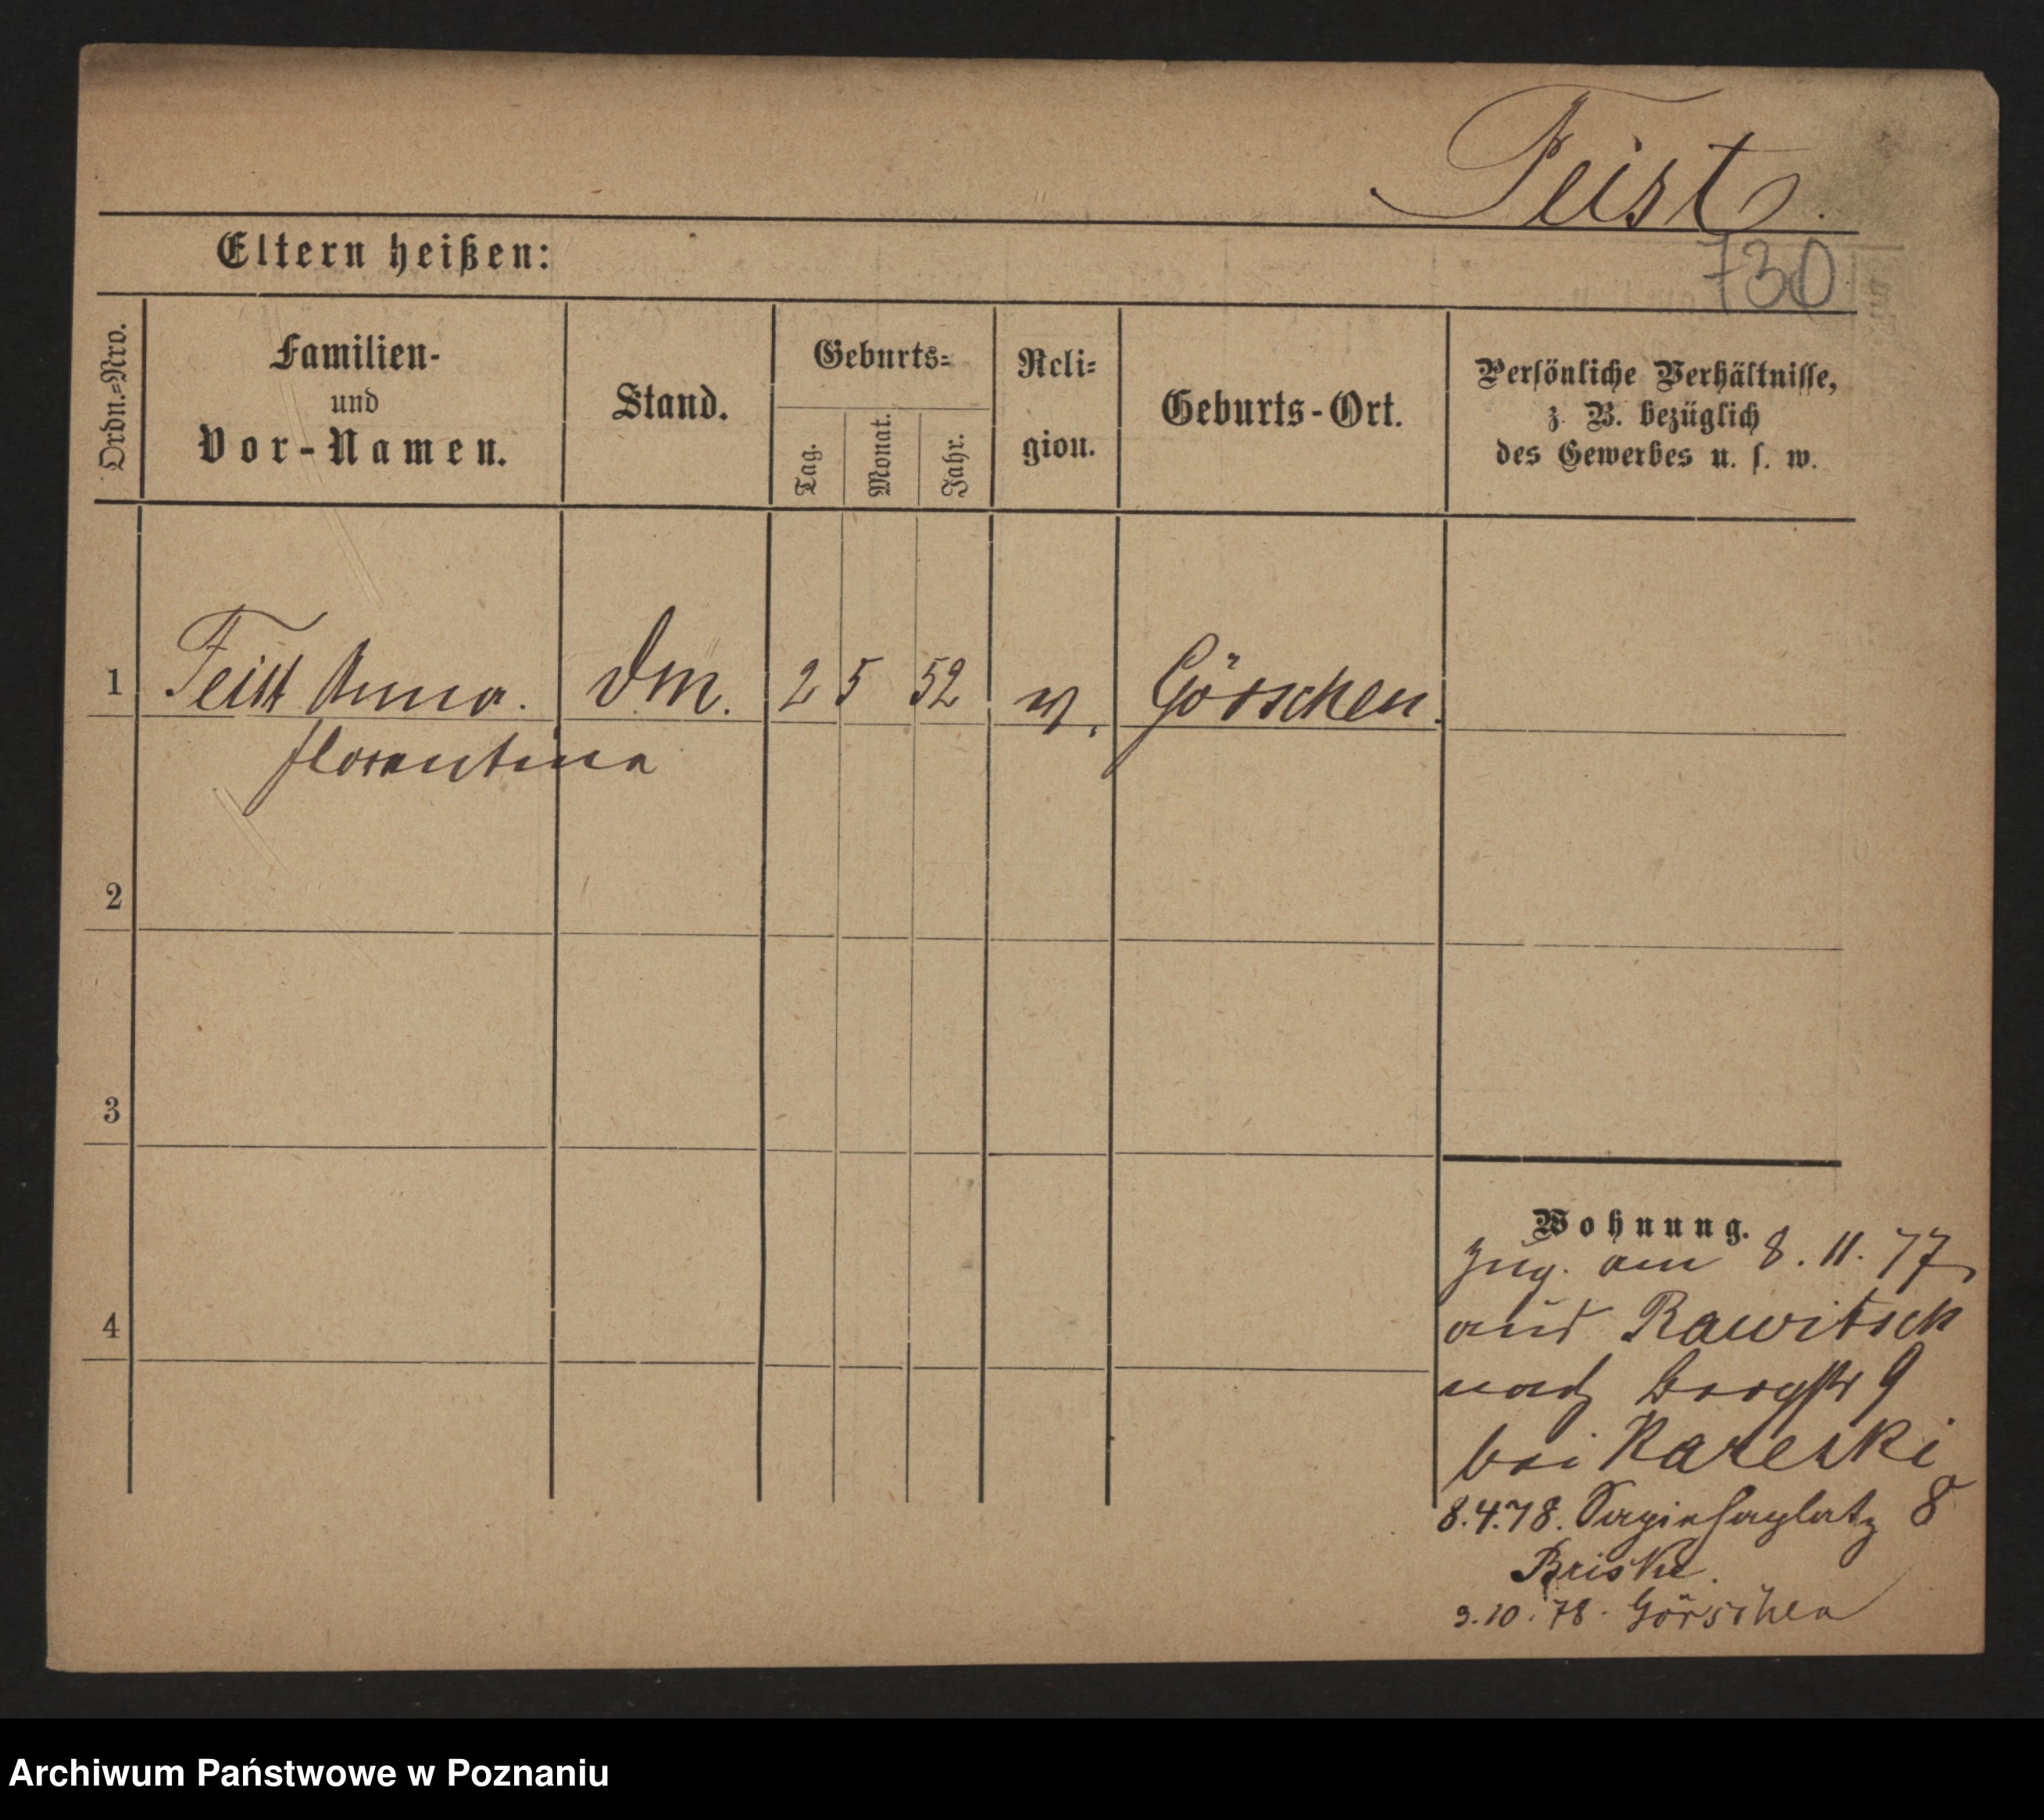 Feist.
730
Eltern heißen:
Ordn.=Nro.
Familien-
und
Vor-Namen.
Stand.
Geburts=
Tag.
Monat.
Jahr.
Reli=
gion.
Geburts-Ort.
Persönliche Verhältnisse,
z. B. bezüglich
des Gewerbes u. s. w.
1 Feist Anna. Dm. 2 5 52 Görschen.
florentina
2
3
4
Wohnung.
zug. am 8. 11. 77
aus Rawitsch
nach 9
bei Kareski
8.4.78. Sapiehaplatz 8
Briske.
3.10.78. Görschen
Archiwum Państwowe w Poznaniu